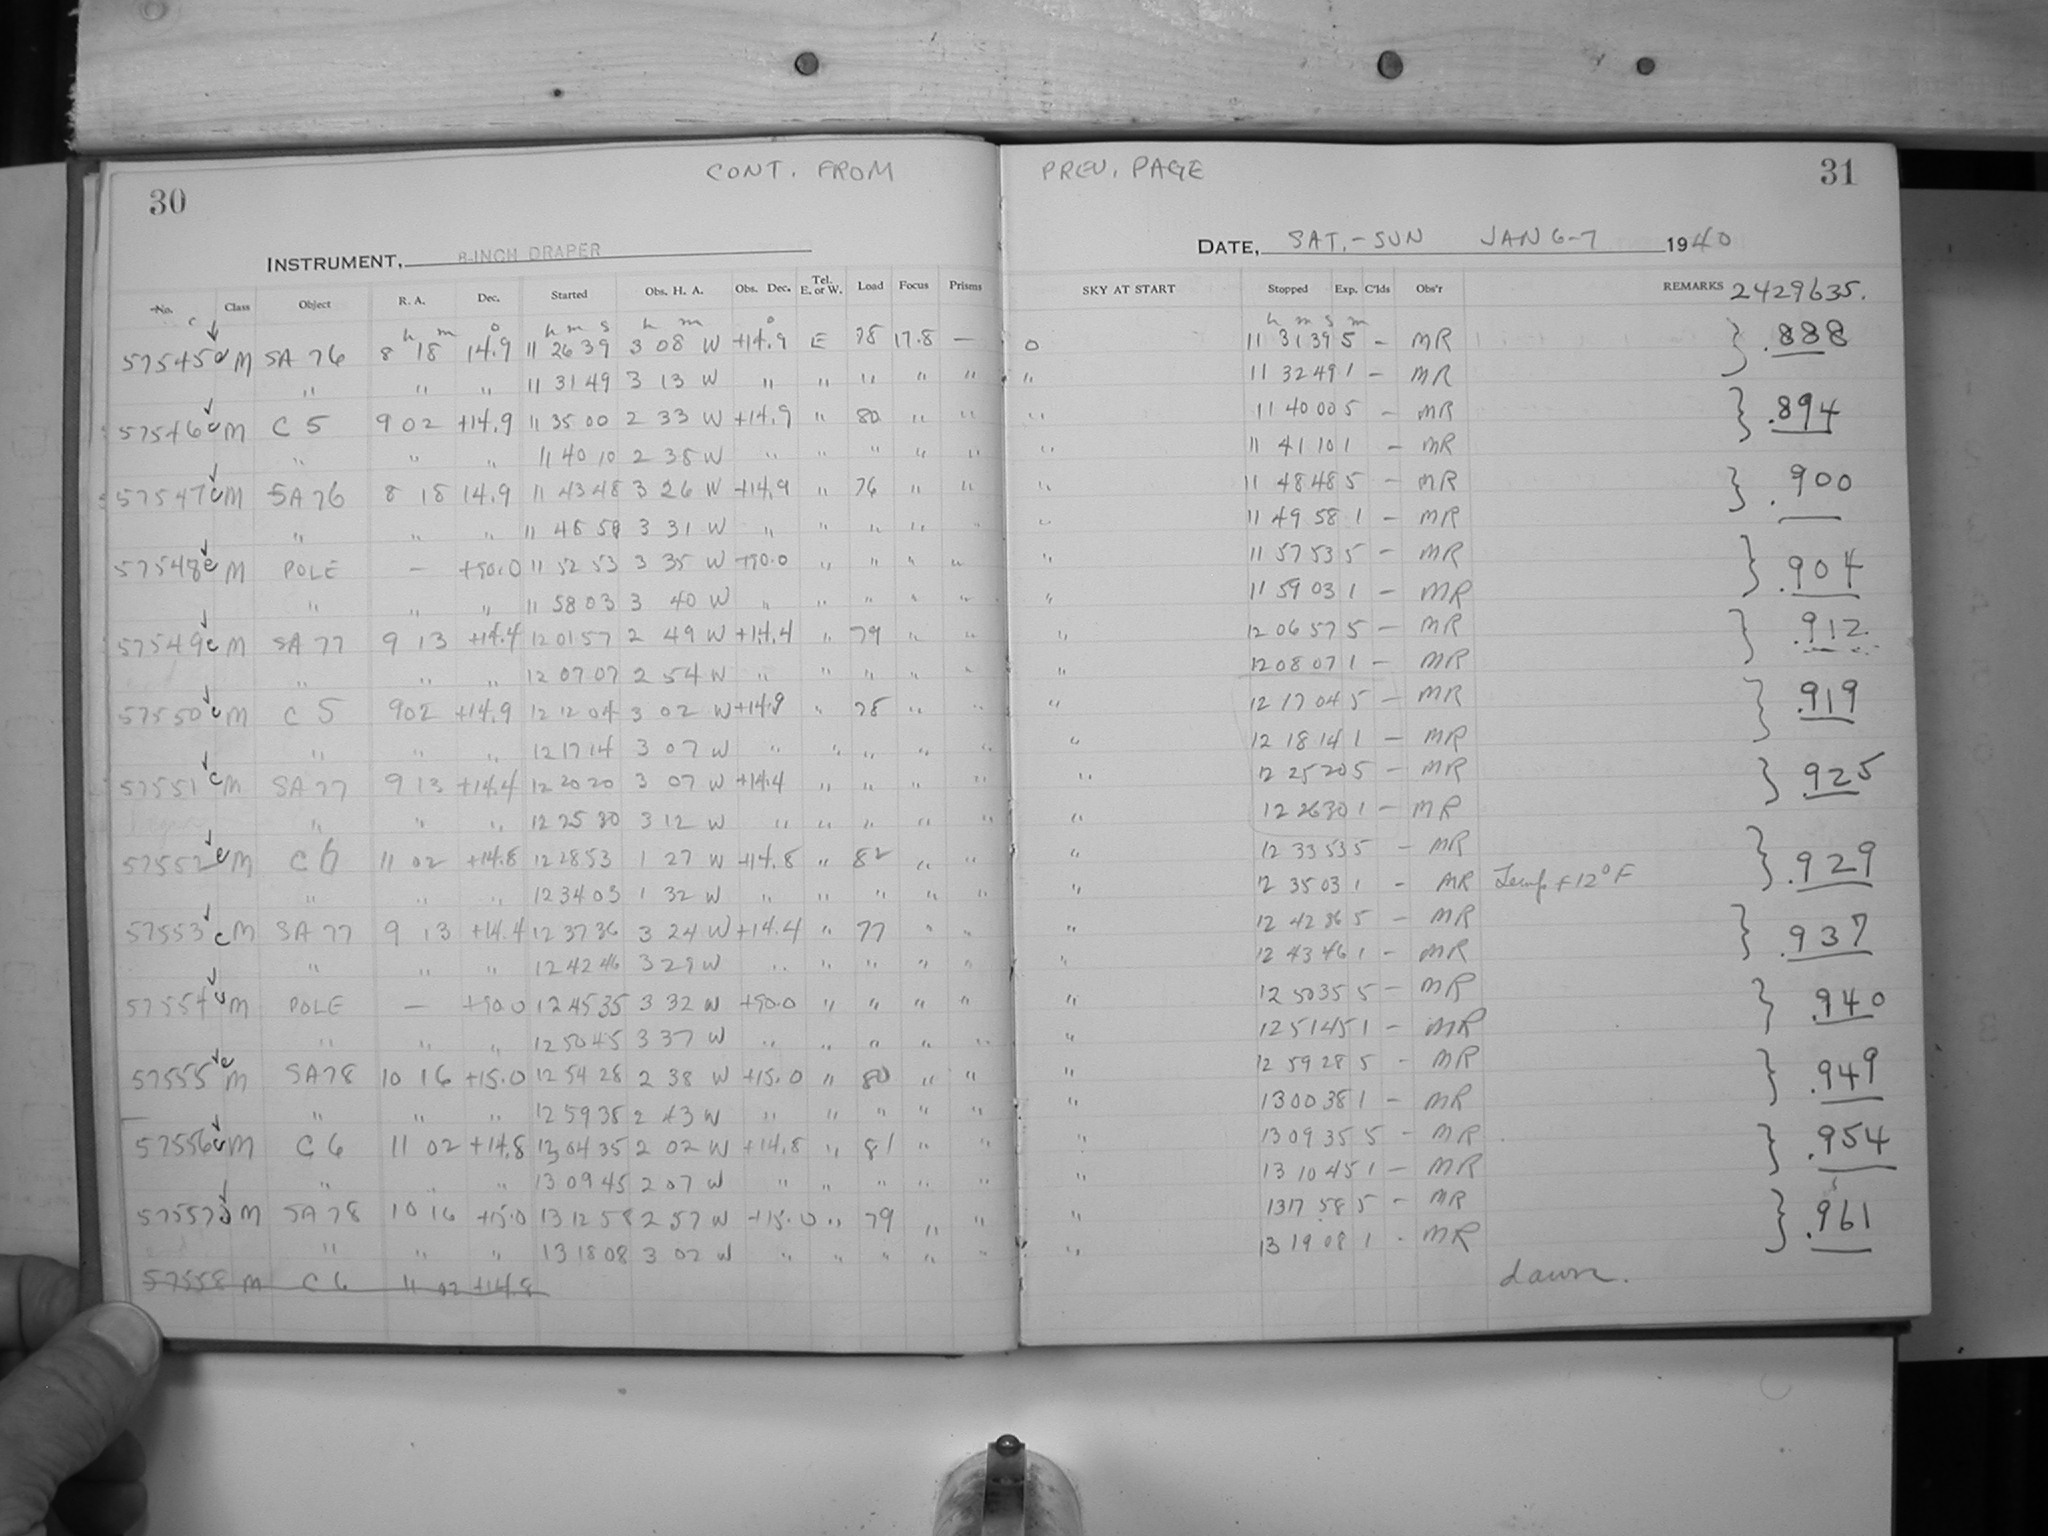 CONT. FROM PREV. PAGE
30 31
INSTRUMENT, 8-INCH DRAPER DATE, SAT.-SUN JAN 6-7 1940
No. Class Object R. A. Dec. Started Obs. H. A. Obs. Dec. Tel. E. or W. Load Focus Prisms SKY AT START Stopped Exp. C'lds Obs'r REMARKS 2429635.
c h m o h m s h m o h m s m
57545 c M SA 76 8 18 14.9 11 26 39 3 08 W +14.9 E 78 17.8 — 0 11 31 39 5 - MR } .888
" " " 11 31 49 3 13 W " " " " " " 11 32 49 1 - MR
57546 c M C 5 9 02 +14.9 11 35 00 2 33 W +14.9 " 80 " " " 11 40 00 5 - MR } .894
" " " 11 40 10 2 38 W " " " " " " 11 41 10 1 - MR
57547 c M SA 76 8 18 14.9 11 43 48 3 26 W +14.9 " 76 " " " 11 48 48 5 - MR } .900
" " " 11 48 58 3 31 W " " " " " " 11 49 58 1 - MR
57548 c M POLE — +90.0 11 52 53 3 35 W +90.0 " " " " " 11 57 53 5 - MR } .904
" " " 11 58 03 3 40 W " " " " " " 11 59 03 1 - MR
57549 c M SA 77 9 13 +14.4 12 01 57 2 49 W +14.4 " 79 " " " 12 06 57 5 - MR } .912
" " " 12 07 07 2 54 W " " " " " " 12 08 07 1 - MR
57550 c M C 5 9 02 +14.9 12 12 04 3 02 W +14.9 " 78 " " " 12 17 04 5 - MR } .919
" " " 12 17 14 3 07 W " " " " " " 12 18 14 1 - MR
57551 c M SA 77 9 13 +14.4 12 20 20 3 07 W +14.4 " " " " " 12 25 20 5 - MR } .925
" " " 12 25 30 3 12 W " " " " " " 12 26 30 1 - MR
57552 c M C 6 11 02 +14.8 12 28 53 1 27 W +14.8 " 82 " " " 12 33 53 5 - MR } .929
" " " 12 34 03 1 32 W " " " " " " 12 35 03 1 - MR Temp +12°F
57553 c M SA 77 9 13 +14.4 12 37 36 3 24 W +14.4 " 77 " " " 12 42 36 5 - MR } .937
" " " 12 42 46 3 29 W " " " " " " 12 43 46 1 - MR
57554 c M POLE — +90.0 12 45 35 3 32 W +90.0 " " " " " 12 50 35 5 - MR } .940
" " " 12 50 45 3 37 W " " " " " " 12 51 45 1 - MR
57555 c M SA 78 10 16 +15.0 12 54 28 2 38 W +15.0 " 80 " " " 12 59 28 5 - MR } .949
" " " 12 59 38 2 43 W " " " " " " 13 00 38 1 - MR
57556 c M C 6 11 02 +14.8 13 04 35 2 02 W +14.8 " 81 " " " 13 09 35 5 - MR } .954
" " " 13 09 45 2 07 W " " " " " " 13 10 45 1 - MR
57557 c M SA 78 10 16 +15.0 13 12 58 2 57 W +15.0 " 79 " " " 13 17 58 5 - MR } .961
" " " 13 18 08 3 02 W " " " " " " 13 19 08 1 - MR
57558 M C 6 11 02 +14.8 dawn.